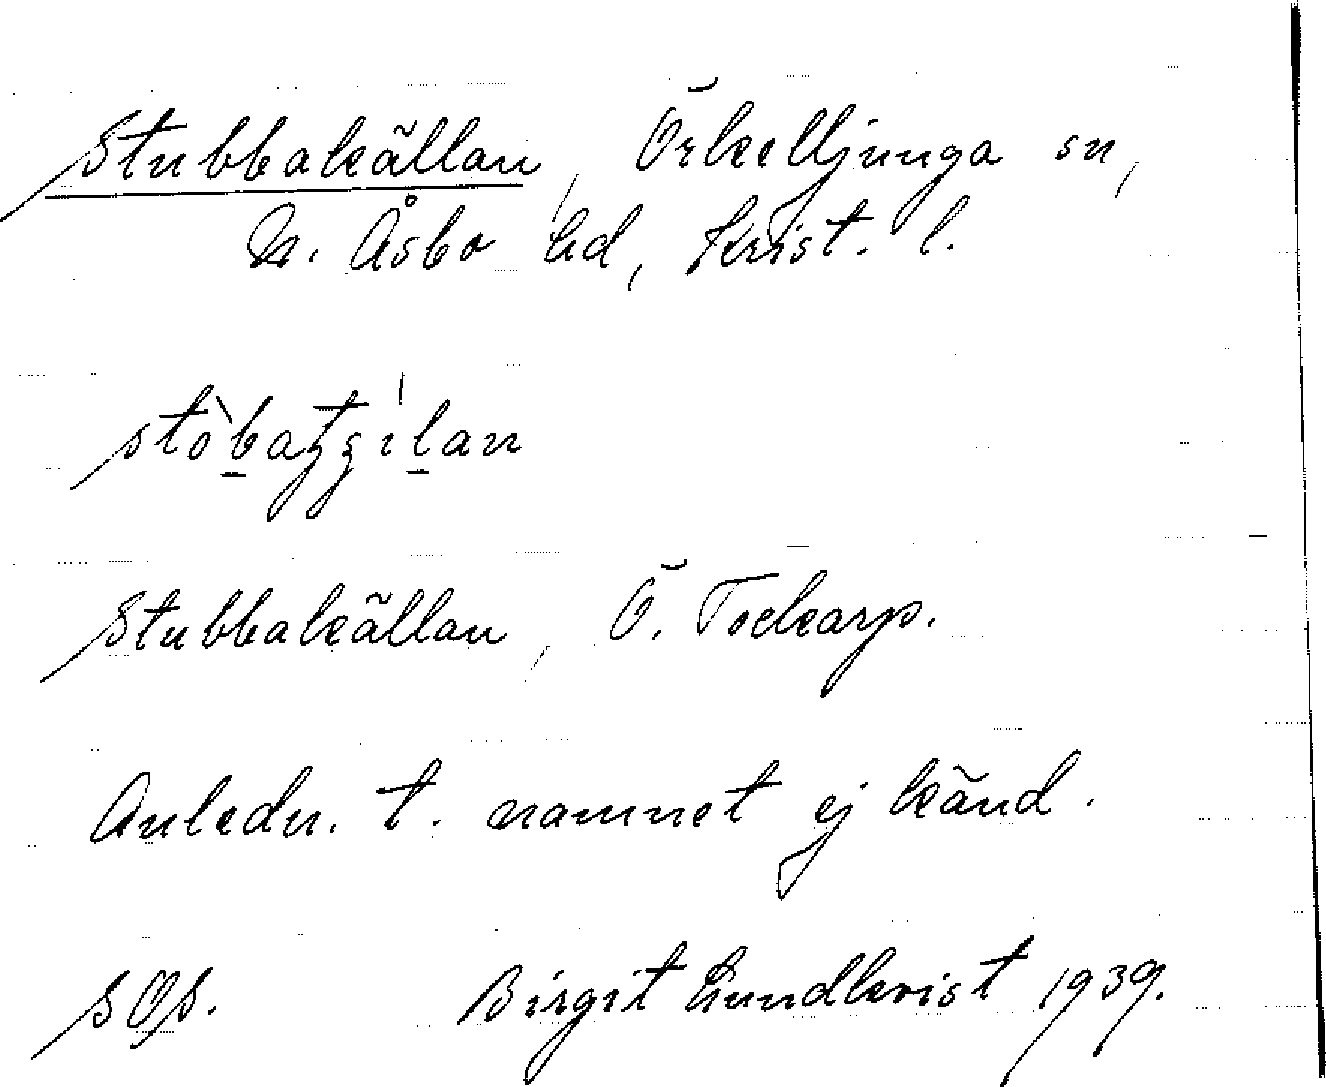 Stubbakällan, Örkelljunga sn,
N. Åsbo hd, Krist. l.
Stubbakällan, Ö. Tockarp.
Anledn. t. namnet ej känd.
Birgit Lundkvist 1939.